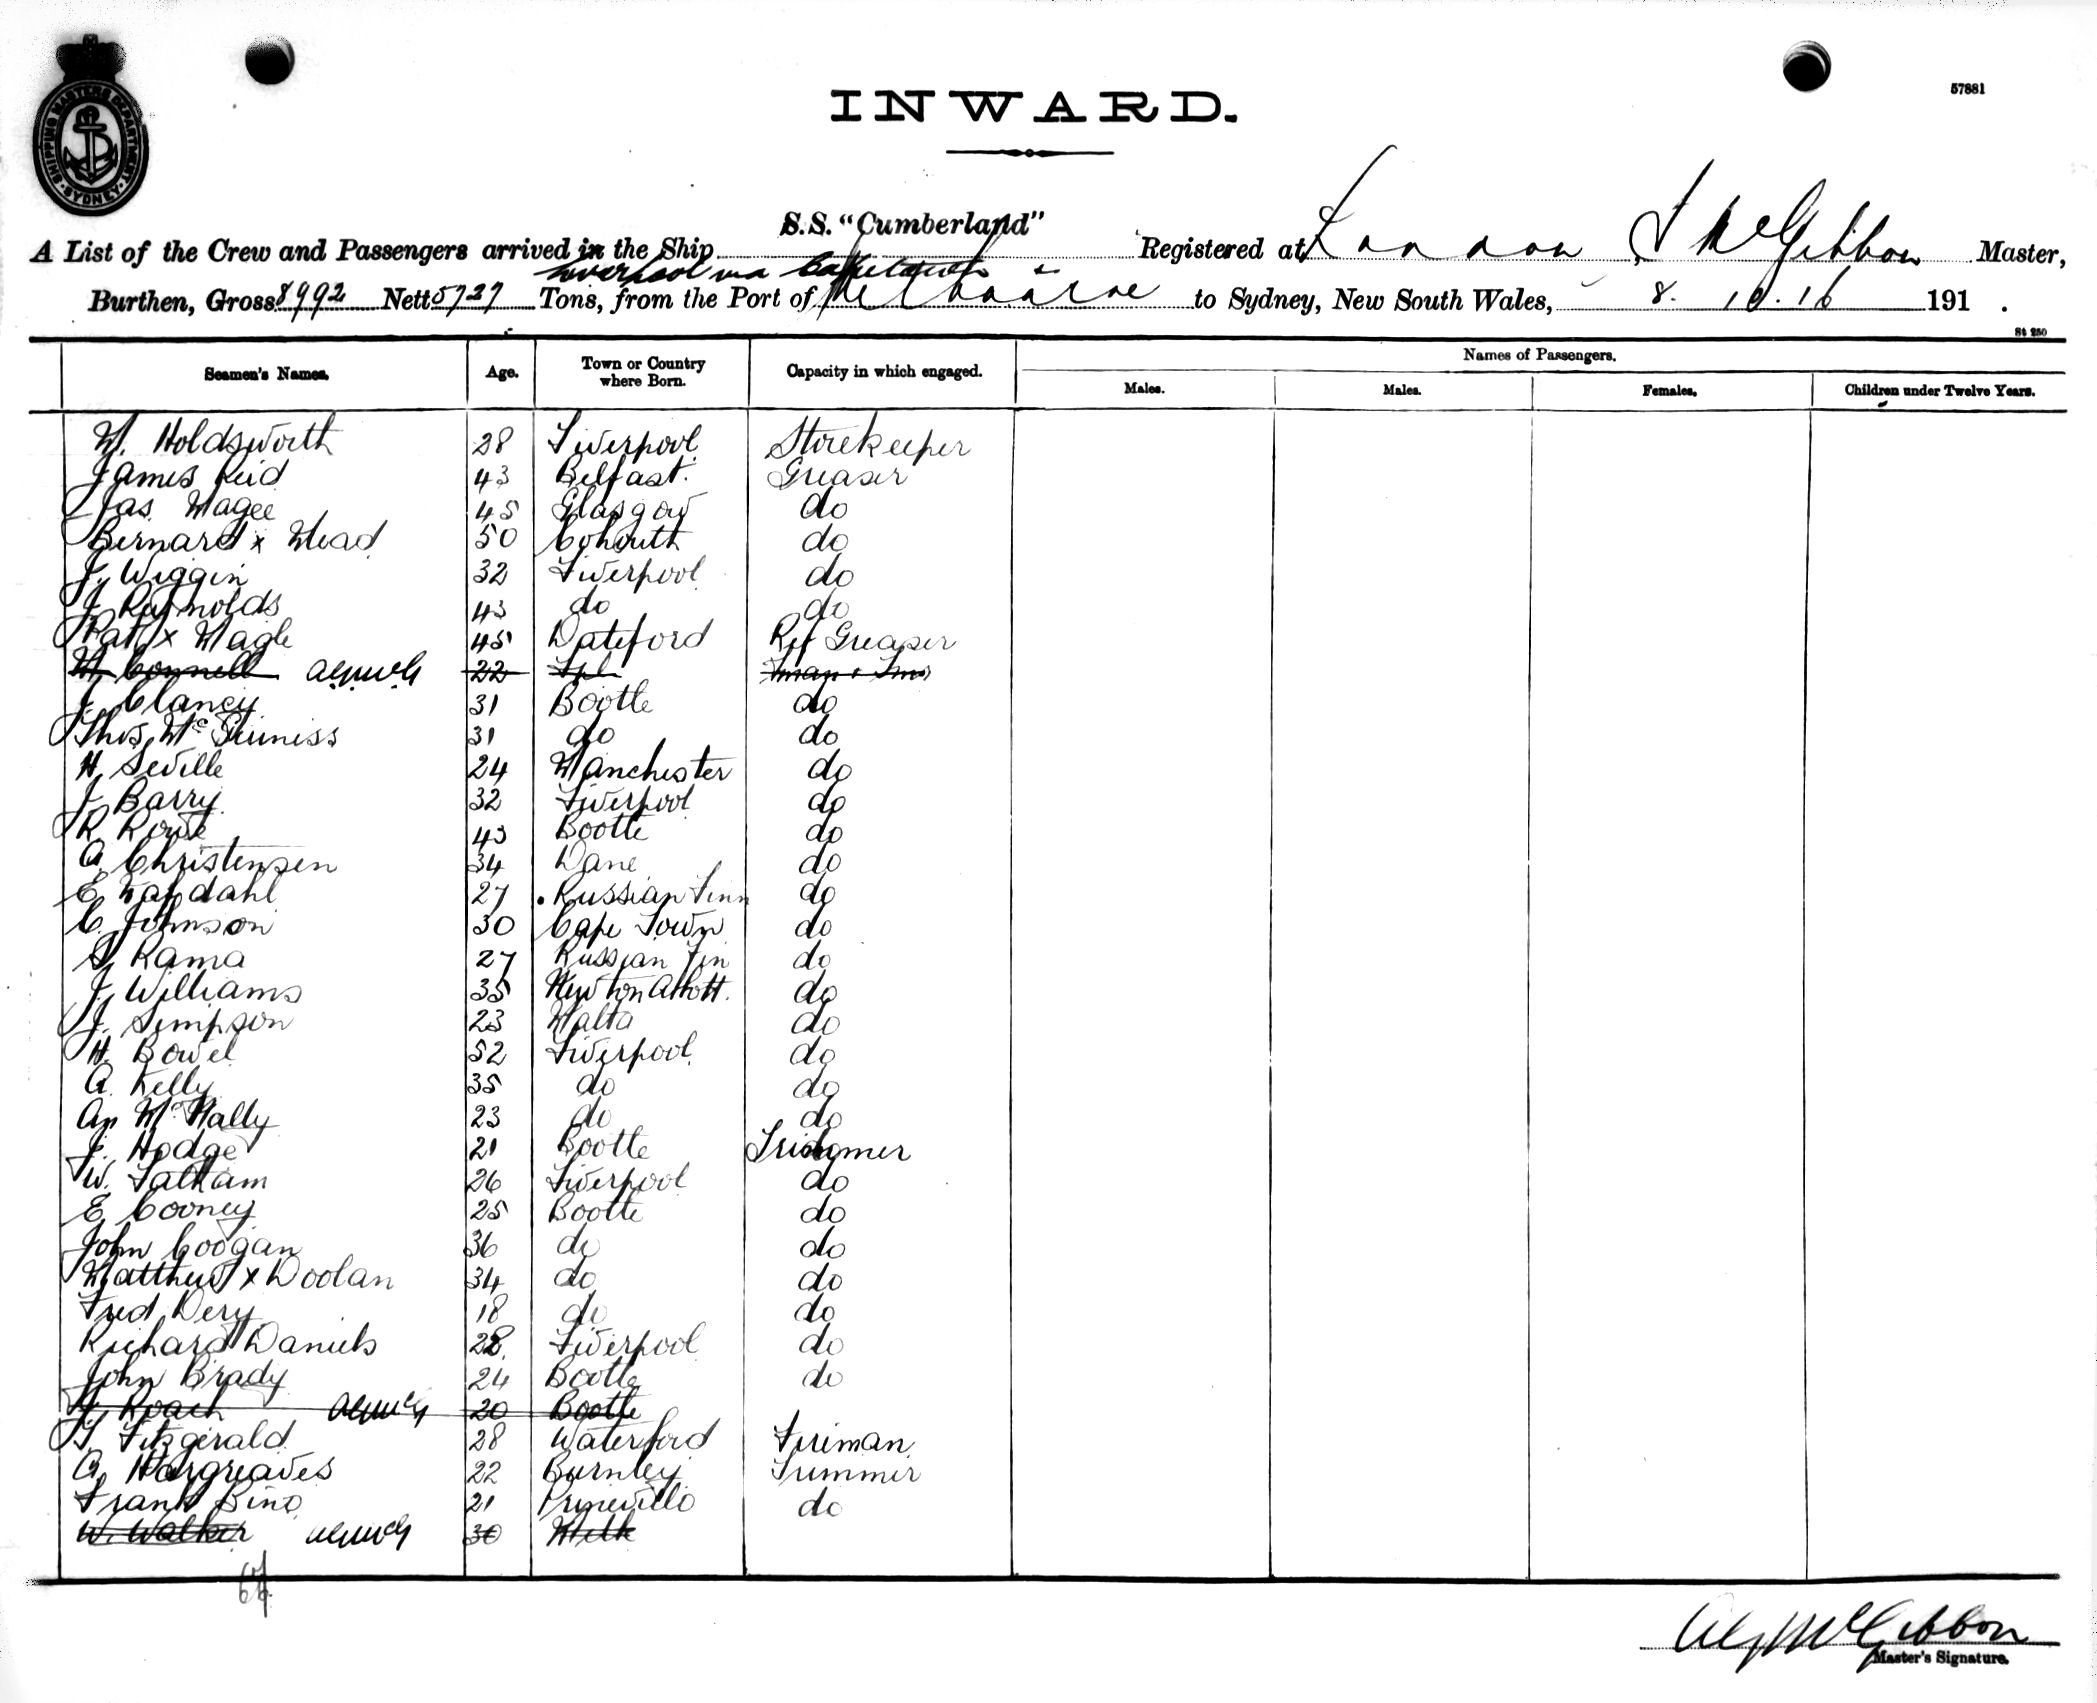 SHIPPING MASTERS DEPARTMENT SYDNEY
57881
INWARD.
S.S. "Cumberland"
A List of the Crew and Passengers arrived in the Ship Registered at London McGibbon Master,
Liverpool via Capetown &
Burthen, Gross 8992 Nett 5727 Tons, from the Port of Melbourne to Sydney, New South Wales, 8. 10. 16 191 .
St 250
Seamen's Names. Age. Town or Country where Born. Capacity in which engaged. Names of Passengers.
Males. Males. Females. Children under Twelve Years.
W. Holdsworth 28 Liverpool Storekeeper
James Reid 43 Belfast. Greaser
Jas. Magee 45 Glasgow do
Bernard x Mead 50 do
J. Wiggin 32 Liverpool do
J. Reynolds 43 do do
Pat x Nagle 45 Ref Greaser
W Connell 22 Lpl
J. Clancy 31 Bootle do
Thos. McGuiness 31 do do
H. Seville 24 Manchester do
J. Barry 32 Liverpool do
R. Rowe 43 Bootle do
A. Christensen 34 Dane do
E. 27 Russian Finn do
C. Johnson 30 Cape Town do
S. Rama 27 Russian Fin do
J. Williams 35 Newton Abbott. do
J. Simpson 23 Malta do
H. Bowel 52 Liverpool do
A. Kelly 35 do do
McNally 23 do do
J. Hodge 21 Bootle Trimmer
W. Latham 26 Liverpool do
E. Cooney 25 Bootle do
John Coogan 36 do do
Matthew x Doolan 34 do do
Fred Dery 18 do do
Richard Daniels 28 Liverpool do
John Brady 24 Bootle do
J. Roach 20 Bootle
T. Fitzgerald 28 Waterford Fireman
A. Hargreaves 22 Burnley Trimmer
Frank Bino 21 do
W. Walker 30
McGibbon
Master's Signature.